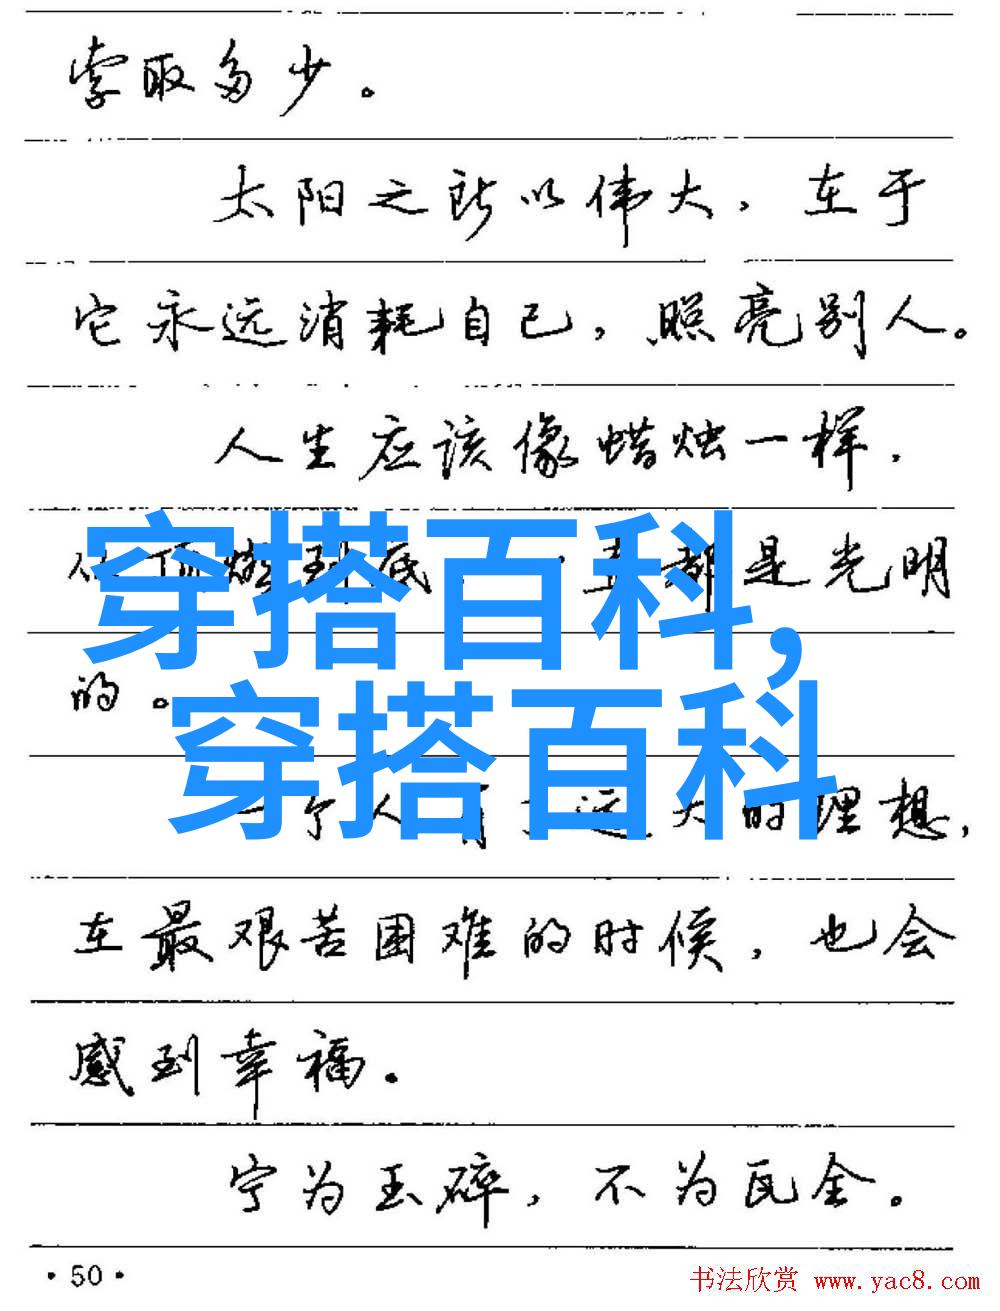 索取多少。
太阳之所以伟大，在于
它永远消耗自己，照亮别人。
人生应该像蜡烛一样，
从顶燃到底，一直都是光明
穿搭百科，
的。
穿搭百科
一个人有了远大的理想，
在最艰苦困难的时候，也会
感到幸福。
宁为玉碎，不为瓦全。
·50·
书法欣赏 www.yac8.com